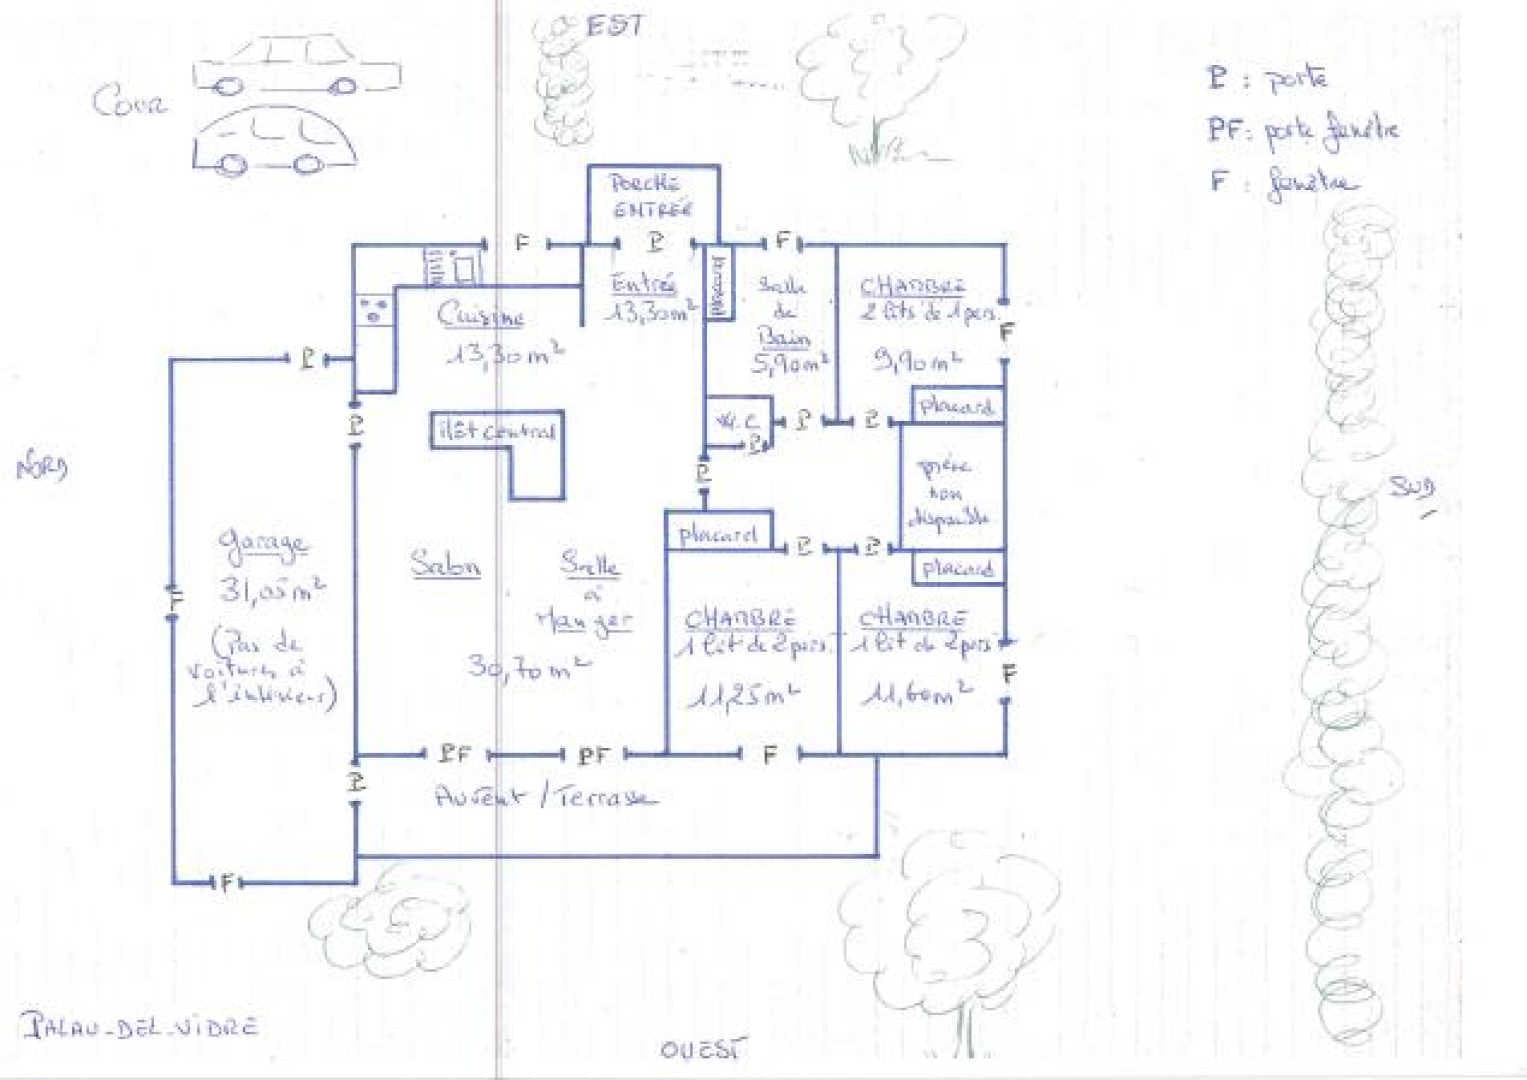 EST
Cour
P : porte
PF : porte fenêtre
F : fenêtre
PORCHE
ENTRÉE
F
P
F
Entrée
13,30 m²
placard
Salle
de
Bain
5,90 m²
CHAMBRE
2 lits de 1 pers.
9,90 m²
F
Cuisine
13,30 m²
P
P
îlôt central
W.C
P
P
P
placard
P
NORD
pièce
non
disponible
SUD
placard
P
P
placard
Garage
31,05 m²
(Pas de
voitures à
l'intérieur)
F
Salon
Salle
à
Manger
30,70 m²
CHAMBRE
1 lit de 2 pers.
11,25 m²
CHAMBRE
1 lit de 2 pers
11,60 m²
F
PF
PF
F
P
Auvent / Terrasse
F
PALAU-DEL-VIDRE
OUEST